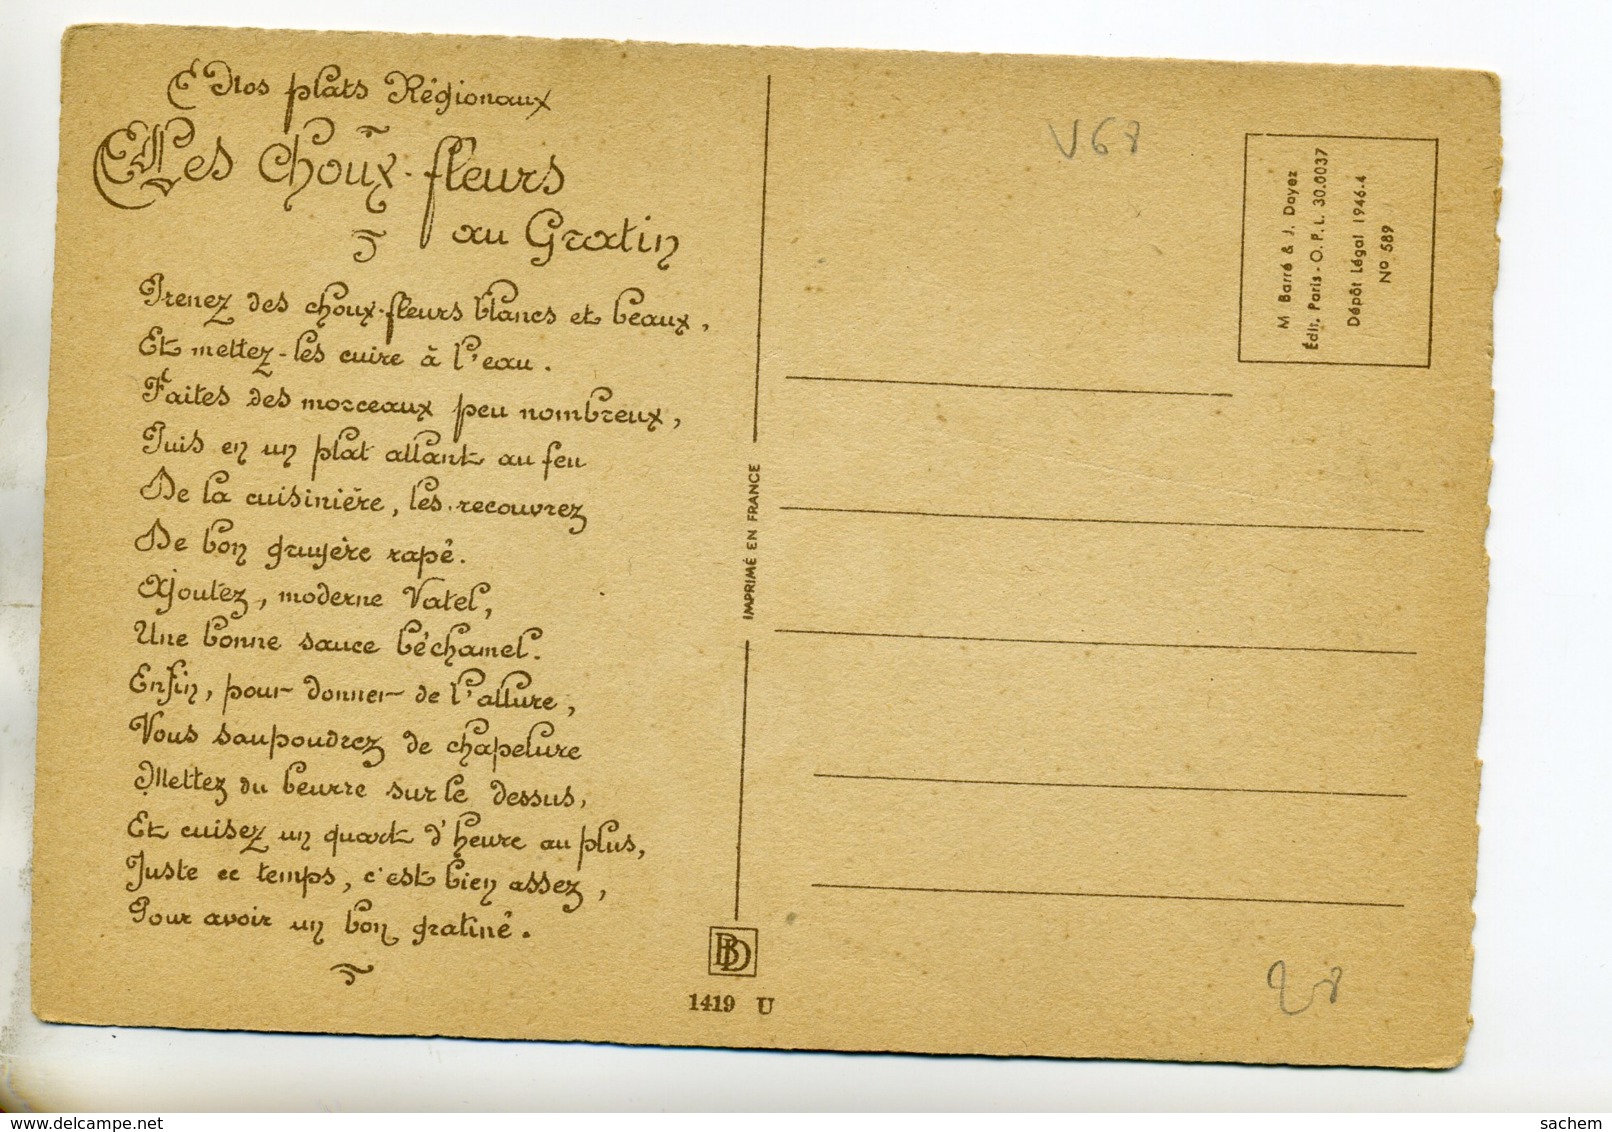 Nos plats Régionaux
Les choux-fleurs
au Gratin
Prenez des choux-fleurs blancs et beaux,
Et mettez-les cuire à l'eau.
Faites des morceaux peu nombreux,
Puis en un plat allant au feu
De la cuisinière, les recouvrez
De bon gruyère rapé.
Ajoutez, moderne Vatel,
Une bonne sauce béchamel.
Enfin, pour donner de l'allure,
Vous saupoudrez de chapelure
Mettez du beurre sur le dessus,
Et cuisez un quart d'heure au plus,
Juste ce temps, c'est bien assez,
Pour avoir un bon gratiné.
IMPRIMÉ EN FRANCE
BD
1419 U
V68
M Barré & J. Dayez
Édit. Paris - O. P. L. 30.0037
Dépôt Légal 1946-4
Nº 589
28
delcampe.net
sachem